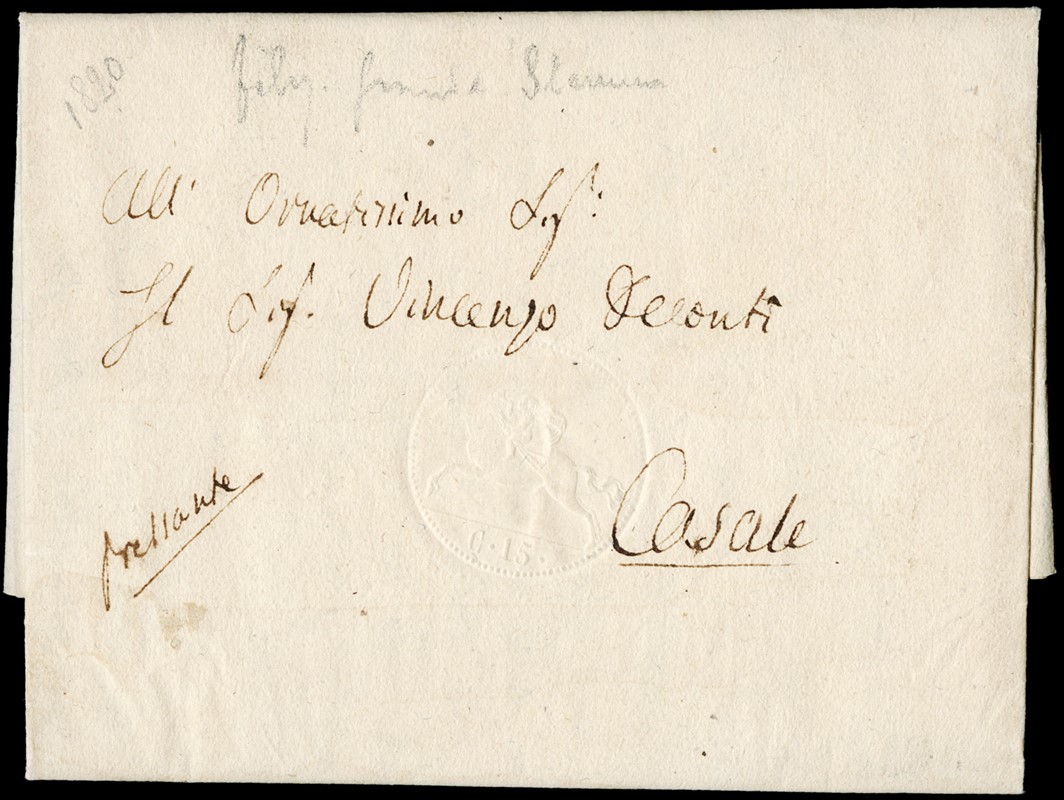 1820
All' Ornatissimo Sigr.
Il Sig. Vincenzo Deconti
pressante
Casale
C. 15.